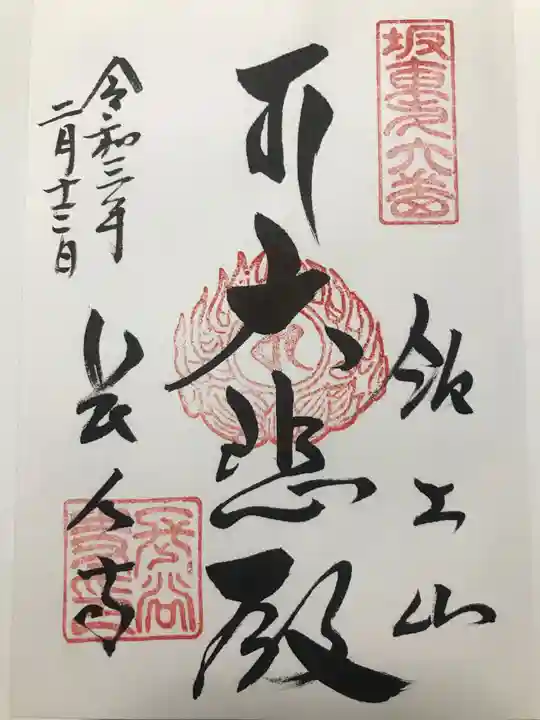 坂東第六番
飯上山
大悲殿
令和三年
二月十二日
長谷寺